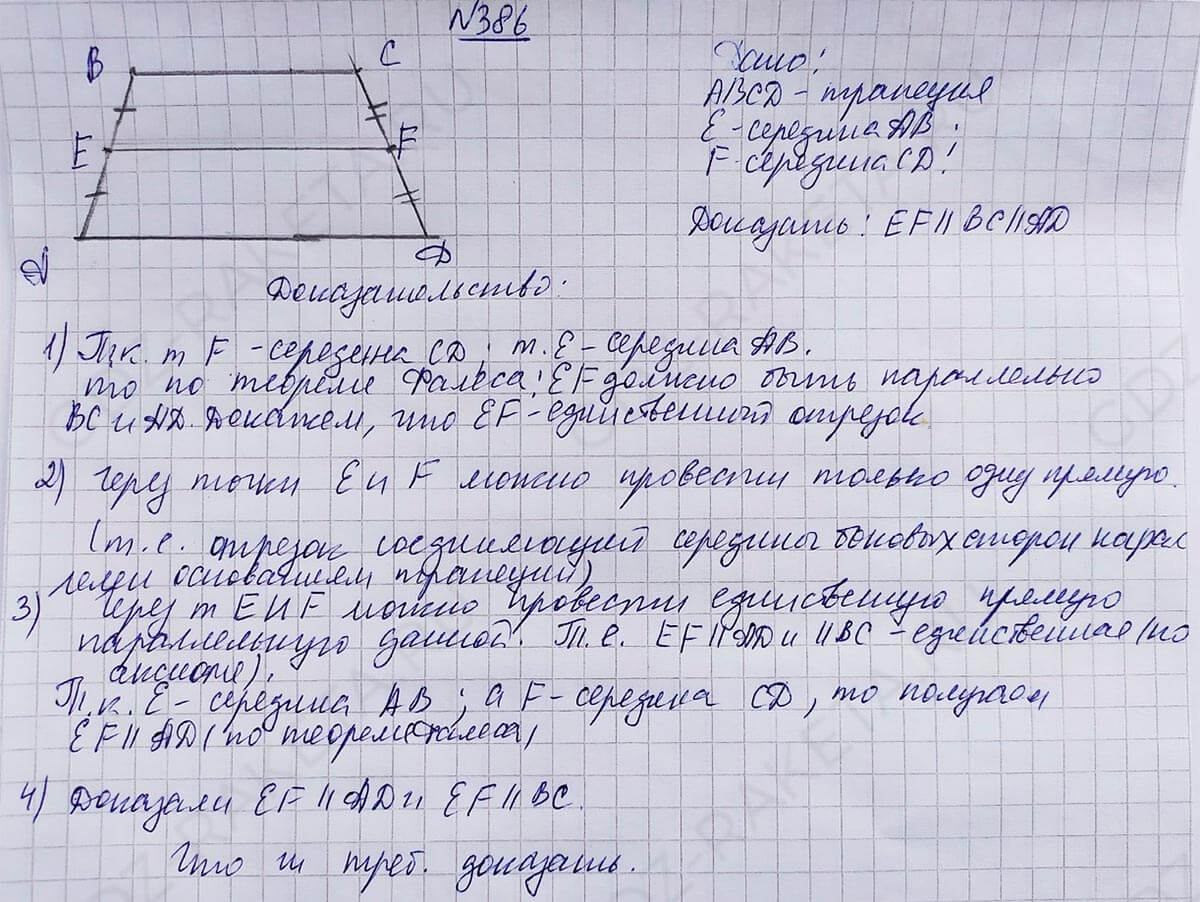 N386
B
C
E
F
A
D
Дано:
ABCD - трапеция
E - середина AB.
F - середина CD!
Доказать: EF || BC || AD
Доказательство:
1) Т.к. т F - середена CD; т. E - середина AB.
то по теореме Фалеса! EF должно быть параллельно
BC и AD. Докажем, что EF - единственный отрезок.
2) Через точки E и F можно провести только одну прямую.
(т.е. отрезок соединяющий середины боковых сторон парал
лелен основаниям трапеции)
3) Через т E и F можно провести единственную прямую
параллельную данной. Т.е. EF || AD и || BC - единственная (по
аксиоме).
Т.к. E - середина AB; а F - середина CD, то получаем
EF || AD (по теореме Фалеса)
4) Доказали EF || AD и EF || BC.
Что и треб. доказать.